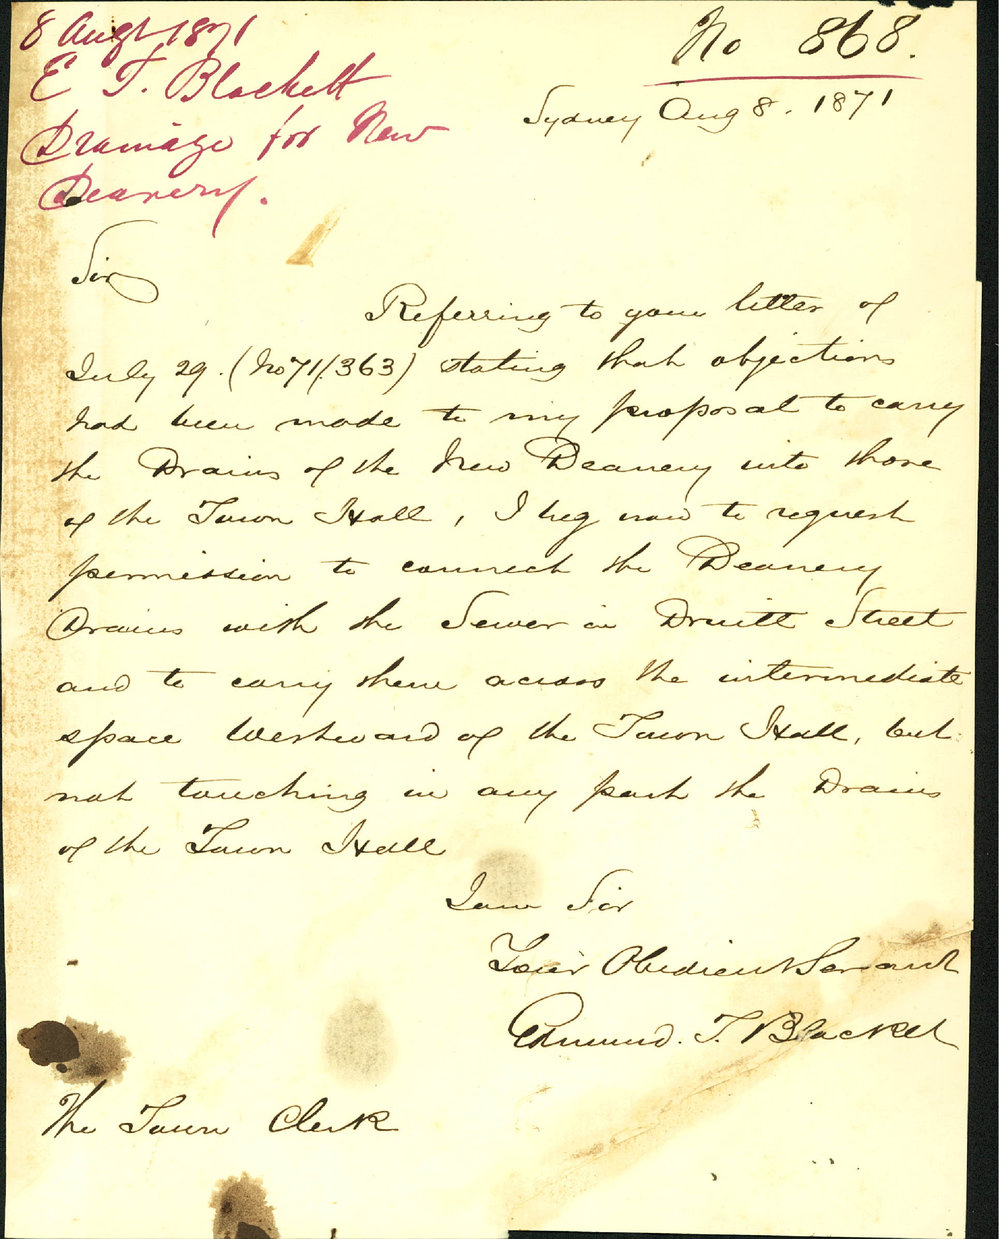 8 Augt 1871
E T. Blackett
Drainage for New
Deanery.
No 868.
Sydney Aug 8. 1871
Sir
Referring to your letter of
July 29. (No 71/363) stating that objections
had been made to my proposal to carry
the Drains of the New Deanery into those
of the Town Hall, I beg now to request
permission to connect the Deanery
Drains with the Sewer in Druitt Street
and to carry them across the intermediate
space Westward of the Town Hall, but
not touching in any part the Drains
of the Town Hall
I am Sir
Your Obedient Servant
Edmund. T. Blackett
The Town Clerk